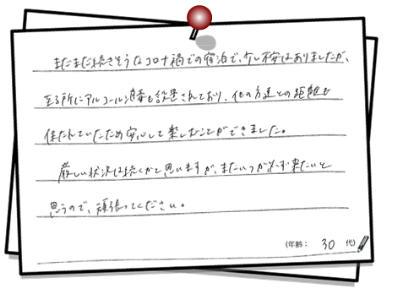 まだまだ続きそうなコロナ禍での宿泊で、少し不安はありましたが、
至る所にアルコール消毒も設置されており、他の方達との距離も
保たれていたため安心して楽しむことができました。
厳しい状況は続くかと思いますが、またいつか必ず来たいと
思うので、頑張ってください。
(年齢: 30 代)